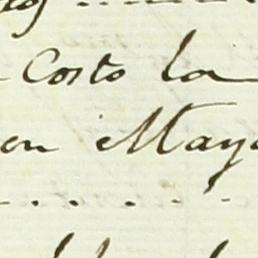 Costo la
en May